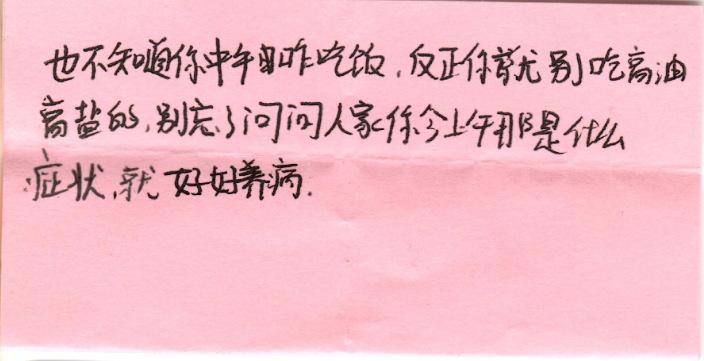 也不知道你中午咋吃饭，反正你就别吃高油
高盐的，别忘了问问人家你今上午那是什么
症状，就好好养病.